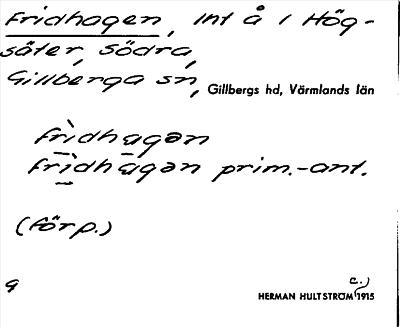 Fridhagen, Int å i Hög-
säter, Södra,
Gillberga sn, Gillbergs hd, Värmlands län
frìdhagən
frìdhagən prim.-ant.
(förp.)
g
HERMAN HULTSTRÖM c.) 1915